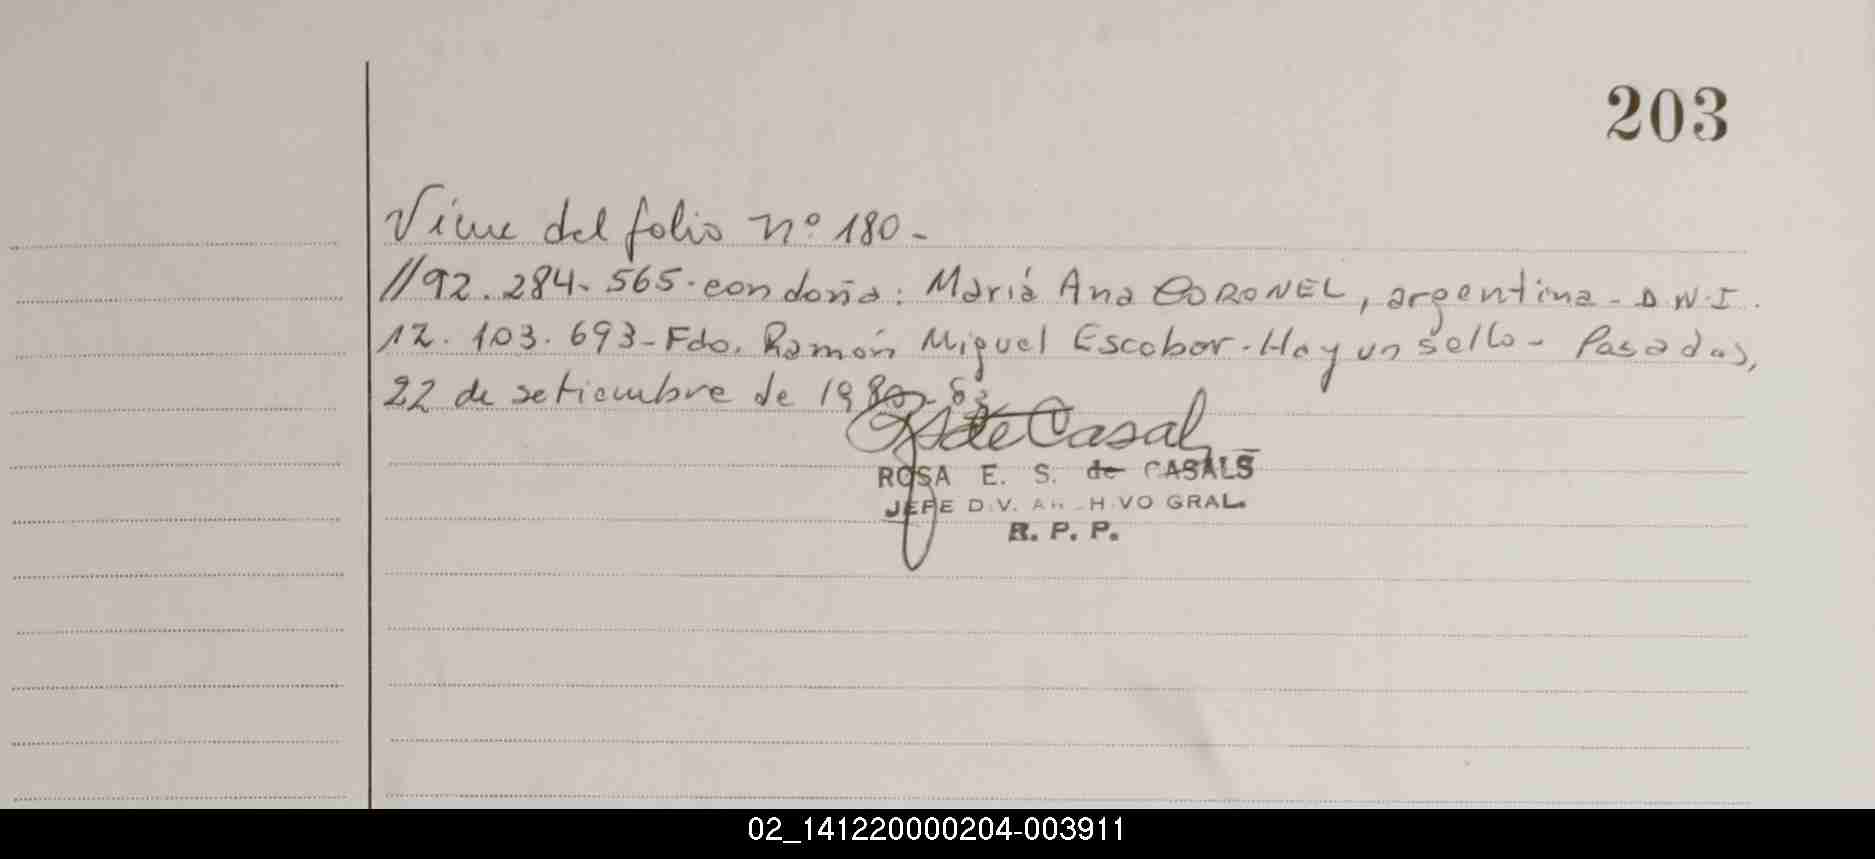 203
Viene del folio nº 180-
//92.284.565.con doña: Mariá Ana CORONEL, argentina-D.N.I.
12.103.693-Fdo. Ramón Miguel Escobar-Hay un sello- Posadas,
22 de setiembre de
de Casals
ROSA E. S. de CASALS
JEFE DIV. ARCHIVO GRAL.
R. P. P.
02_141220000204-003911